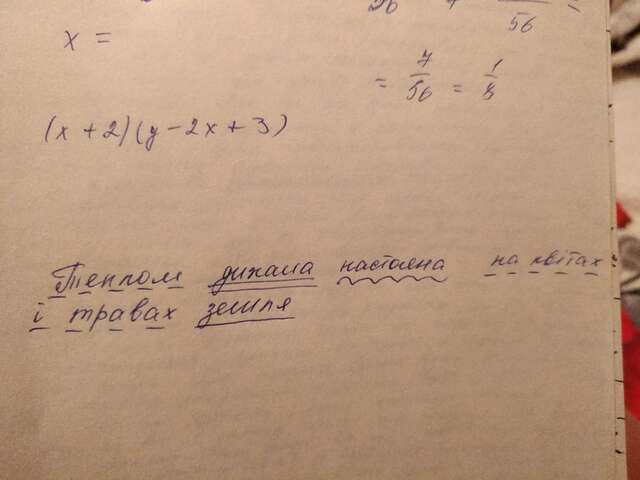 x =
56
=
= 7/56 = 1/8
(x + 2)(y - 2x + 3)
Теплом дихала настояна на квітах
і травах земля